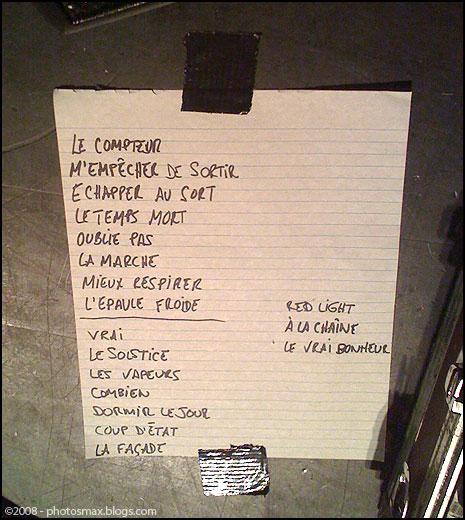 LE COMPTEUR
M'EMPÊCHER DE SORTIR
ECHAPPER AU SORT
LE TEMPS MORT
OUBLIE PAS
LA MARCHE
MIEUX RESPIRER
L'EPAULE FROIDE
VRAI
LE SOLSTICE
LES VAPEURS
COMBIEN
DORMIR LE JOUR
COUP D'ÉTAT
LA FAÇADE
RED LIGHT
À LA CHAÎNE
LE VRAI BONHEUR
©2008 - photosmax.blogs.com